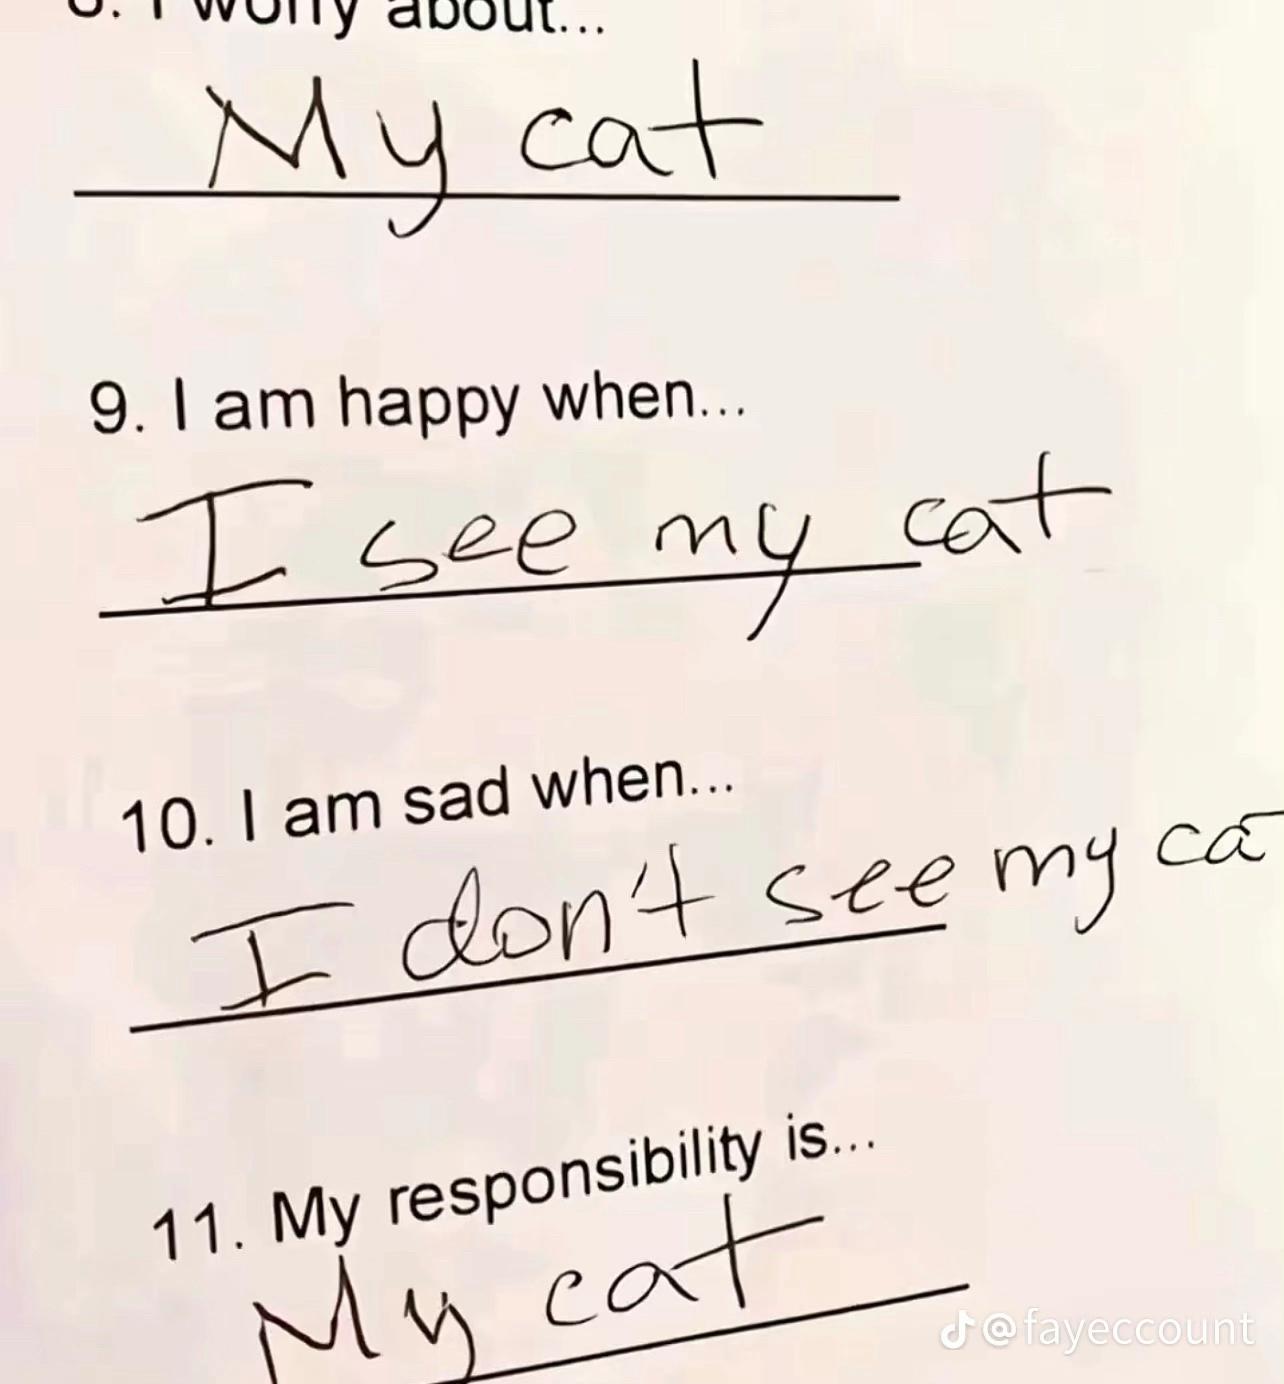 8. I worry about...
My cat
9. I am happy when...
I see my cat
10. I am sad when...
I don't see my ca
11. My responsibility is...
My cat
@fayeccount